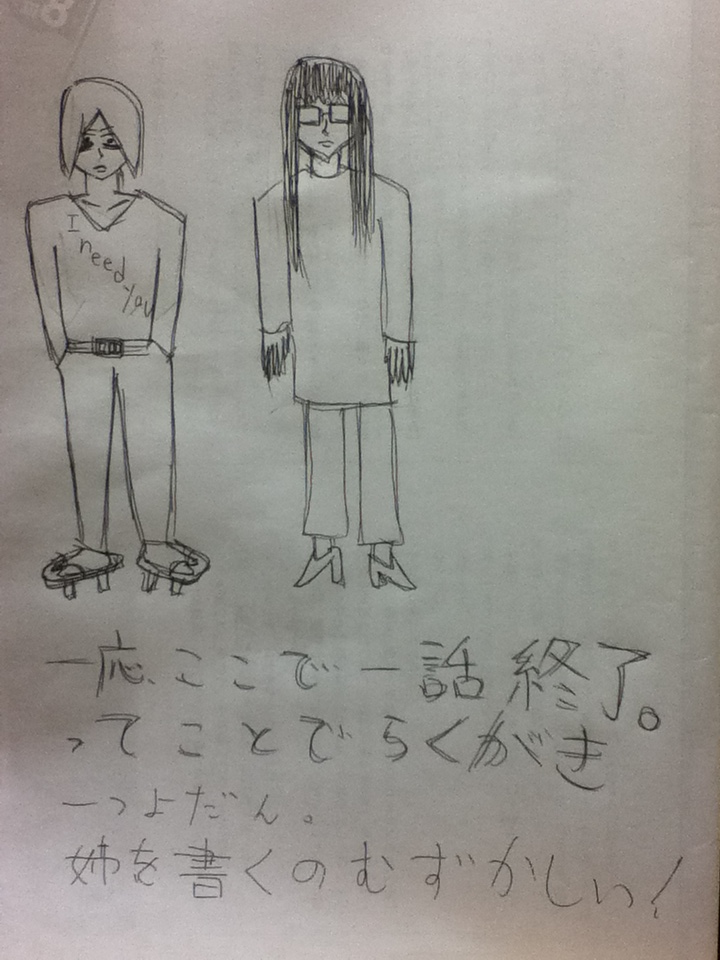 I
need
you
一応、ここで一話終了。
ってことでらくがき
一つよだん。
姉を書くのむずかしい!